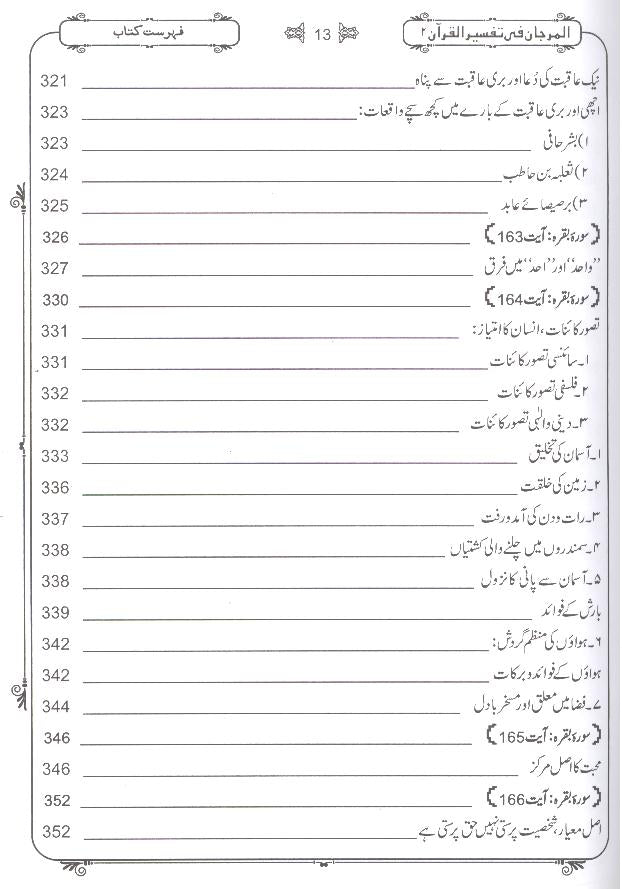 المرجان فی تفسیر القرآن ۲ 13 فہرست کتاب
نیک عاقبت کی دُعا اور بری عاقبت سے پناہ 321
اچھی اور بری عاقبت کے بارے میں کچھ سچے واقعات: 323
۱) بشر حافی 323
۲) ثعلبہ بن حاطب 324
۳) برصیصائے عابد 325
﴿سورۂ بقرہ: آیت 163﴾ 326
’’واحد‘‘ اور ’’احد‘‘ میں فرق 327
﴿سورۂ بقرہ: آیت 164﴾ 330
تصور کائنات، انسان کا امتیاز: 331
۱۔ سائنسی تصور کائنات 331
۲۔ فلسفی تصور کائنات 332
۳۔ دینی و الٰہی تصور کائنات 332
۱۔ آسمان کی تخلیق 333
۲۔ زمین کی خلقت 336
۳۔ رات و دن کی آمد و رفت 337
۴۔ سمندروں میں چلنے والی کشتیاں 338
۵۔ آسمان سے پانی کا نزول 338
بارش کے فوائد 339
۶۔ ہواؤں کی منظم گردش: 342
ہواؤں کے فوائد و برکات 342
۷۔ فضا میں معلق اور مسخر بادل 344
﴿سورۂ بقرہ: آیت 165﴾ 346
محبت کا اصل مرکز 346
﴿سورۂ بقرہ: آیت 166﴾ 352
اصل معیار، شخصیت پرستی نہیں حق پرستی ہے 352